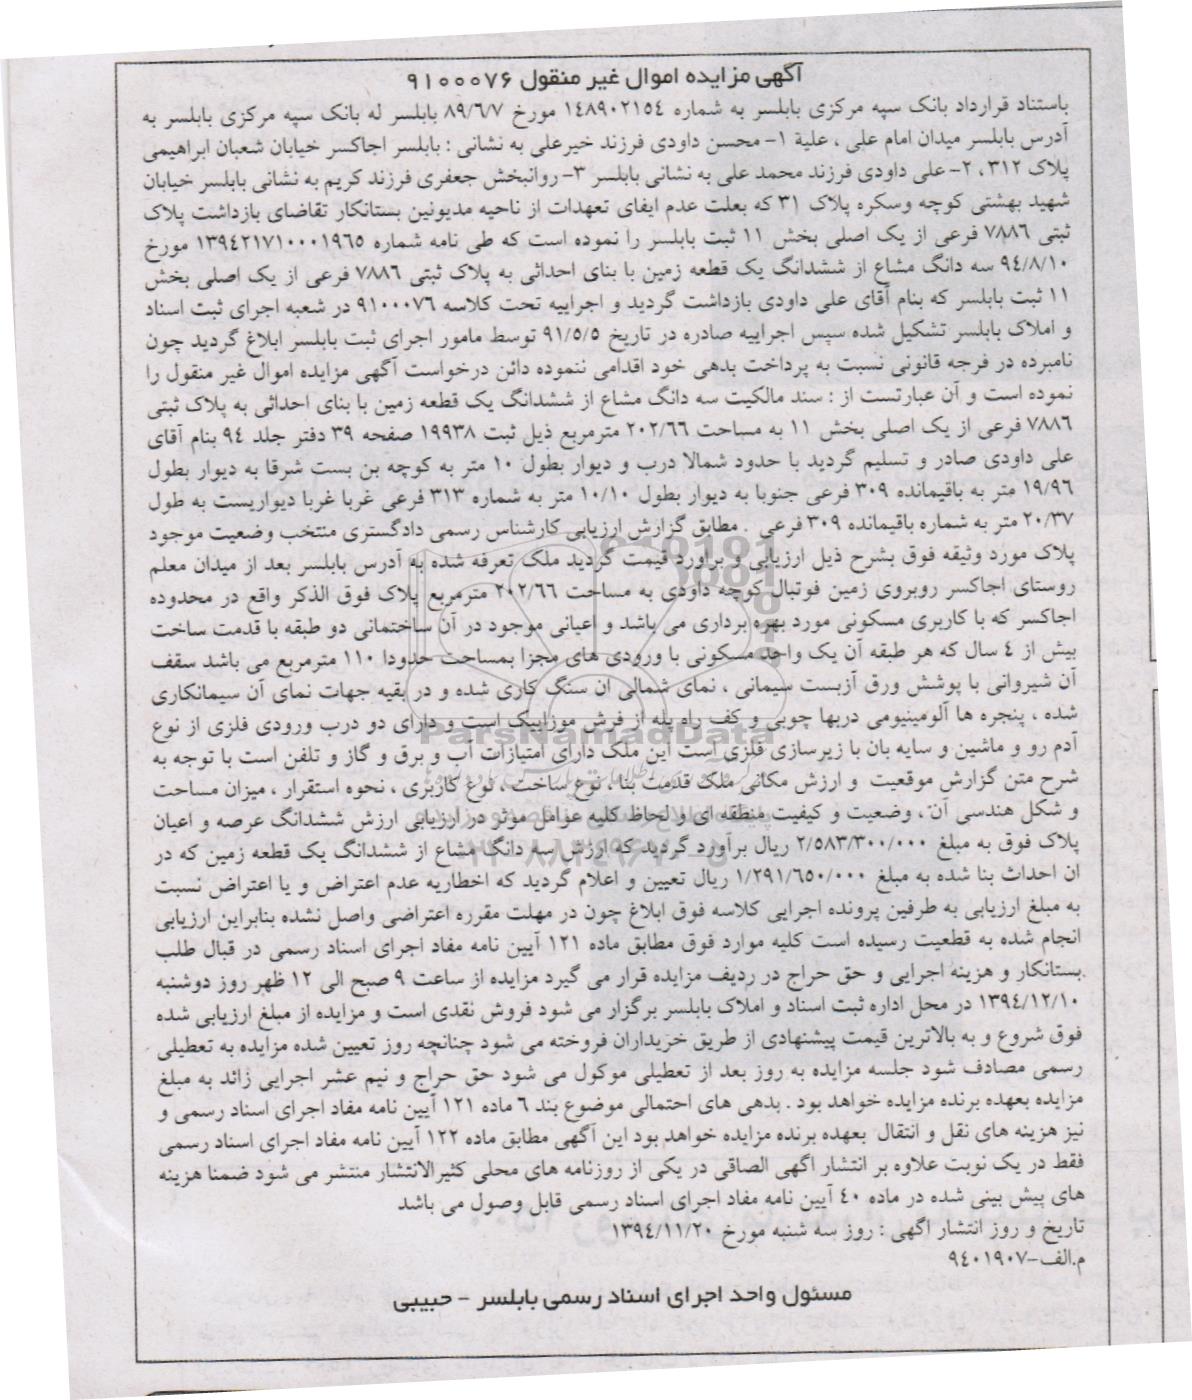 آگهی مزایده اموال غیر منقول ۹۱۰۰۰۷۶
باستناد قرارداد بانک سپه مرکزی بابلسر به شماره ۱۴۸۹۰۲۱۵۴ مورخ ۸۹/۶/۷ بابلسر له بانک سپه مرکزی بابلسر به
آدرس بابلسر میدان امام علی ، علیة ۱- محسن داودی فرزند خیرعلی به نشانی : بابلسر اجاکسر خیابان شعبان ابراهیمی
پلاک ۳۱۲ ، ۲- علی داودی فرزند محمد علی به نشانی بابلسر ۳- روانبخش جعفری فرزند کریم به نشانی بابلسر خیابان
شهید بهشتی کوچه وسکره پلاک ۳۱ که بعلت عدم ایفای تعهدات از ناحیه مدیونین بستانکار تقاضای بازداشت پلاک
ثبتی ۷۸۸۶ فرعی از یک اصلی بخش ۱۱ ثبت بابلسر را نموده است که طی نامه شماره ۱۳۹۴۲۱۷۱۰۰۰۱۹۶۵ مورخ
۹۴/۸/۱۰ سه دانگ مشاع از ششدانگ یک قطعه زمین با بنای احداثی به پلاک ثبتی ۷۸۸۶ فرعی از یک اصلی بخش
۱۱ ثبت بابلسر که بنام آقای علی داودی بازداشت گردید و اجراییه تحت کلاسه ۹۱۰۰۰۷۶ در شعبه اجرای ثبت اسناد
و املاک بابلسر تشکیل شده سپس اجراییه صادره در تاریخ ۹۱/۵/۵ توسط مامور اجرای ثبت بابلسر ابلاغ گردید چون
نامبرده در فرجه قانونی نسبت به پرداخت بدهی خود اقدامی ننموده دائن درخواست آگهی مزایده اموال غیر منقول را
نموده است و آن عبارتست از : سند مالکیت سه دانگ مشاع از ششدانگ یک قطعه زمین با بنای احداثی به پلاک ثبتی
۷۸۸۶ فرعی از یک اصلی بخش ۱۱ به مساحت ۲۰۲/۶۶ مترمربع ذیل ثبت ۱۹۹۳۸ صفحه ۳۹ دفتر جلد ۹۴ بنام آقای
علی داودی صادر و تسلیم گردید با حدود شمالا درب و دیوار بطول ۱۰ متر به کوچه بن بست شرقا به دیوار بطول
۱۹/۹۶ متر به باقیمانده ۳۰۹ فرعی جنوبا به دیوار بطول ۱۰/۱۰ متر به شماره ۳۱۳ فرعی غربا غربا دیواریست به طول
۲۰/۳۷ متر به شماره باقیمانده ۳۰۹ فرعی . مطابق گزارش ارزیابی کارشناس رسمی دادگستری منتخب وضعیت موجود
پلاک مورد وثیقه فوق بشرح ذیل ارزیابی و براورد قیمت گردید ملک تعرفه شده به آدرس بابلسر بعد از میدان معلم
روستای اجاکسر روبروی زمین فوتبال کوچه داودی به مساحت ۲۰۲/۶۶ مترمربع پلاک فوق الذکر واقع در محدوده
اجاکسر که با کاربری مسکونی مورد بهره برداری می باشد و اعیانی موجود در آن ساختمانی دو طبقه با قدمت ساخت
بیش از ۴ سال که هر طبقه آن یک واحد مسکونی با ورودی های مجزا بمساحت حدودا ۱۱۰ مترمربع می باشد سقف
آن شیروانی با پوشش ورق آزبست سیمانی ، نمای شمالی ان سنگ کاری شده و در بقیه جهات نمای آن سیمانکاری
شده ، پنجره ها آلومینیومی دربها چوبی و کف راه پله از فرش موزاییک است و دارای دو درب ورودی فلزی از نوع
آدم رو و ماشین و سایه بان با زیرسازی فلزی است این ملک دارای امتیازات آب و برق و گاز و تلفن است با توجه به
شرح متن گزارش موقعیت و ارزش مکانی ملک قدمت بنا ، نوع ساخت ، نوع کاربری ، نحوه استقرار ، میزان مساحت
و شکل هندسی آن ، وضعیت و کیفیت منطقه ای و لحاظ کلیه عوامل موثر در ارزیابی ارزش ششدانگ عرصه و اعیان
پلاک فوق به مبلغ ۲/۵۸۳/۳۰۰/۰۰۰ ریال برآورد گردید که ارزش سه دانگ مشاع از ششدانگ یک قطعه زمین که در
ان احداث بنا شده به مبلغ ۱/۲۹۱/۶۵۰/۰۰۰ ریال تعیین و اعلام گردید که اخطاریه عدم اعتراض و یا اعتراض نسبت
به مبلغ ارزیابی به طرفین پرونده اجرایی کلاسه فوق ابلاغ چون در مهلت مقرره اعتراضی واصل نشده بنابراین ارزیابی
انجام شده به قطعیت رسیده است کلیه موارد فوق مطابق ماده ۱۲۱ آیین نامه مفاد اجرای اسناد رسمی در قبال طلب
بستانکار و هزینه اجرایی و حق حراج در ردیف مزایده قرار می گیرد مزایده از ساعت ۹ صبح الی ۱۲ ظهر روز دوشنبه
۱۳۹۴/۱۲/۱۰ در محل اداره ثبت اسناد و املاک بابلسر برگزار می شود فروش نقدی است و مزایده از مبلغ ارزیابی شده
فوق شروع و به بالاترین قیمت پیشنهادی از طریق خریداران فروخته می شود چنانچه روز تعیین شده مزایده به تعطیلی
رسمی مصادف شود جلسه مزایده به روز بعد از تعطیلی موکول می شود حق حراج و نیم عشر اجرایی زائد به مبلغ
مزایده بعهده برنده مزایده خواهد بود . بدهی های احتمالی موضوع بند ۶ ماده ۱۲۱ آیین نامه مفاد اجرای اسناد رسمی و
نیز هزینه های نقل و انتقال بعهده برنده مزایده خواهد بود این آگهی مطابق ماده ۱۲۲ آیین نامه مفاد اجرای اسناد رسمی
فقط در یک نوبت علاوه بر انتشار اگهی الصاقی در یکی از روزنامه های محلی کثیرالانتشار منتشر می شود ضمنا هزینه
های پیش بینی شده در ماده ۴۰ آیین نامه مفاد اجرای اسناد رسمی قابل وصول می باشد
تاریخ و روز انتشار اگهی : روز سه شنبه مورخ ۱۳۹۴/۱۱/۲۰
م.الف-۹۴۰۱۹۰۷
مسئول واحد اجرای اسناد رسمی بابلسر - حبیبی
ParsNamadData